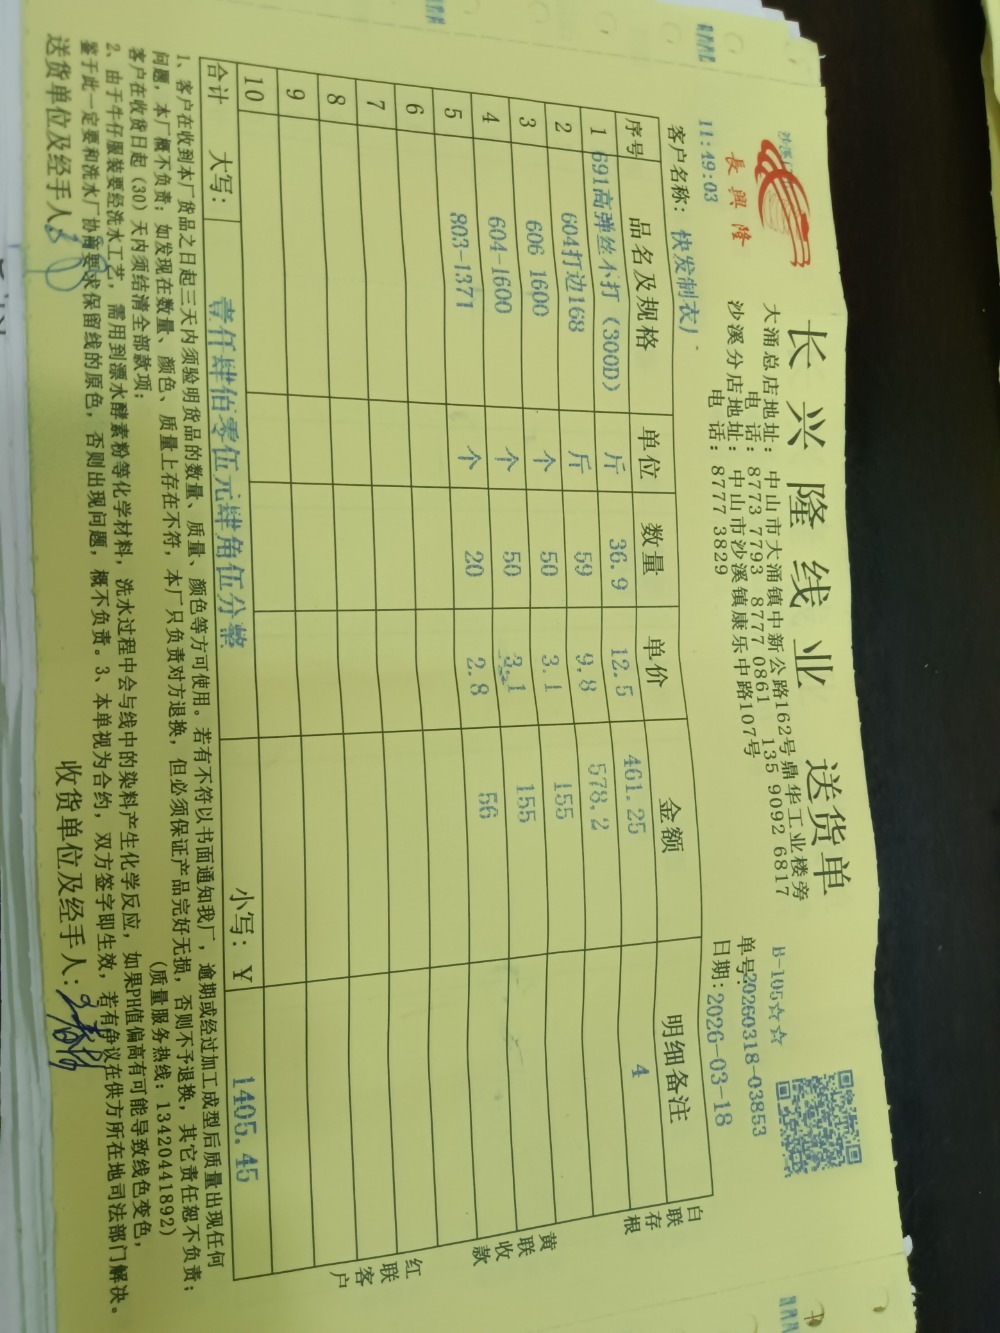 長興隆
长兴隆线业 送货单
大涌总店地址：中山市大涌镇中新公路162号鼎华工业楼旁
电话：8773 7793 8777 0861 135 9092 6817
沙溪分店地址：中山市沙溪镇康乐中路107号
电话：8777 3829
B-105☆☆
单号:20260318-03853
11:49:03
日期:2026-03-18
客户名称：快发制衣厂
序号 品名及规格 单位 数量 单价 金额 明细备注
1 691高弹丝不打（300D） 斤 36.9 12.5 461.25 4
2 604打边168 斤 59 9.8 578.2
3 606 1600 个 50 3.1 155
4 604-1600 个 50 3.1 155
5 803-1371 个 20 2.8 56
6
7
8
9
10
合计 大写：壹仟肆佰零伍元肆角伍分整 小写：¥ 1405.45
白联存根
黄联收款
红联客户
1、客户在收到本厂货品之日起三天内须验明货品的数量、质量、颜色等方可使用。若有不符以书面通知我厂，逾期或经过加工成型后质量出现任何
问题，本厂概不负责；如发现在数量、颜色、质量上存在不符，本厂只负责对方退换，但必须保证产品完好无损，否则不予退换，其它责任恕不负责；
客户在收货日起（30）天内须结清全部款项； (质量服务热线：13420441892)
2、由于牛仔服装要经洗水工艺，需用到漂水酵素粉等化学材料，洗水过程中会与线中的染料产生化学反应，如果PH值偏高有可能导致线色变色，
鉴于此一定要和洗水厂协商要求保留线的原色，否则出现问题，概不负责。3、本单视为合约，双方签字即生效，若有争议在供方所在地司法部门解决。
送货单位及经手人： 收货单位及经手人：